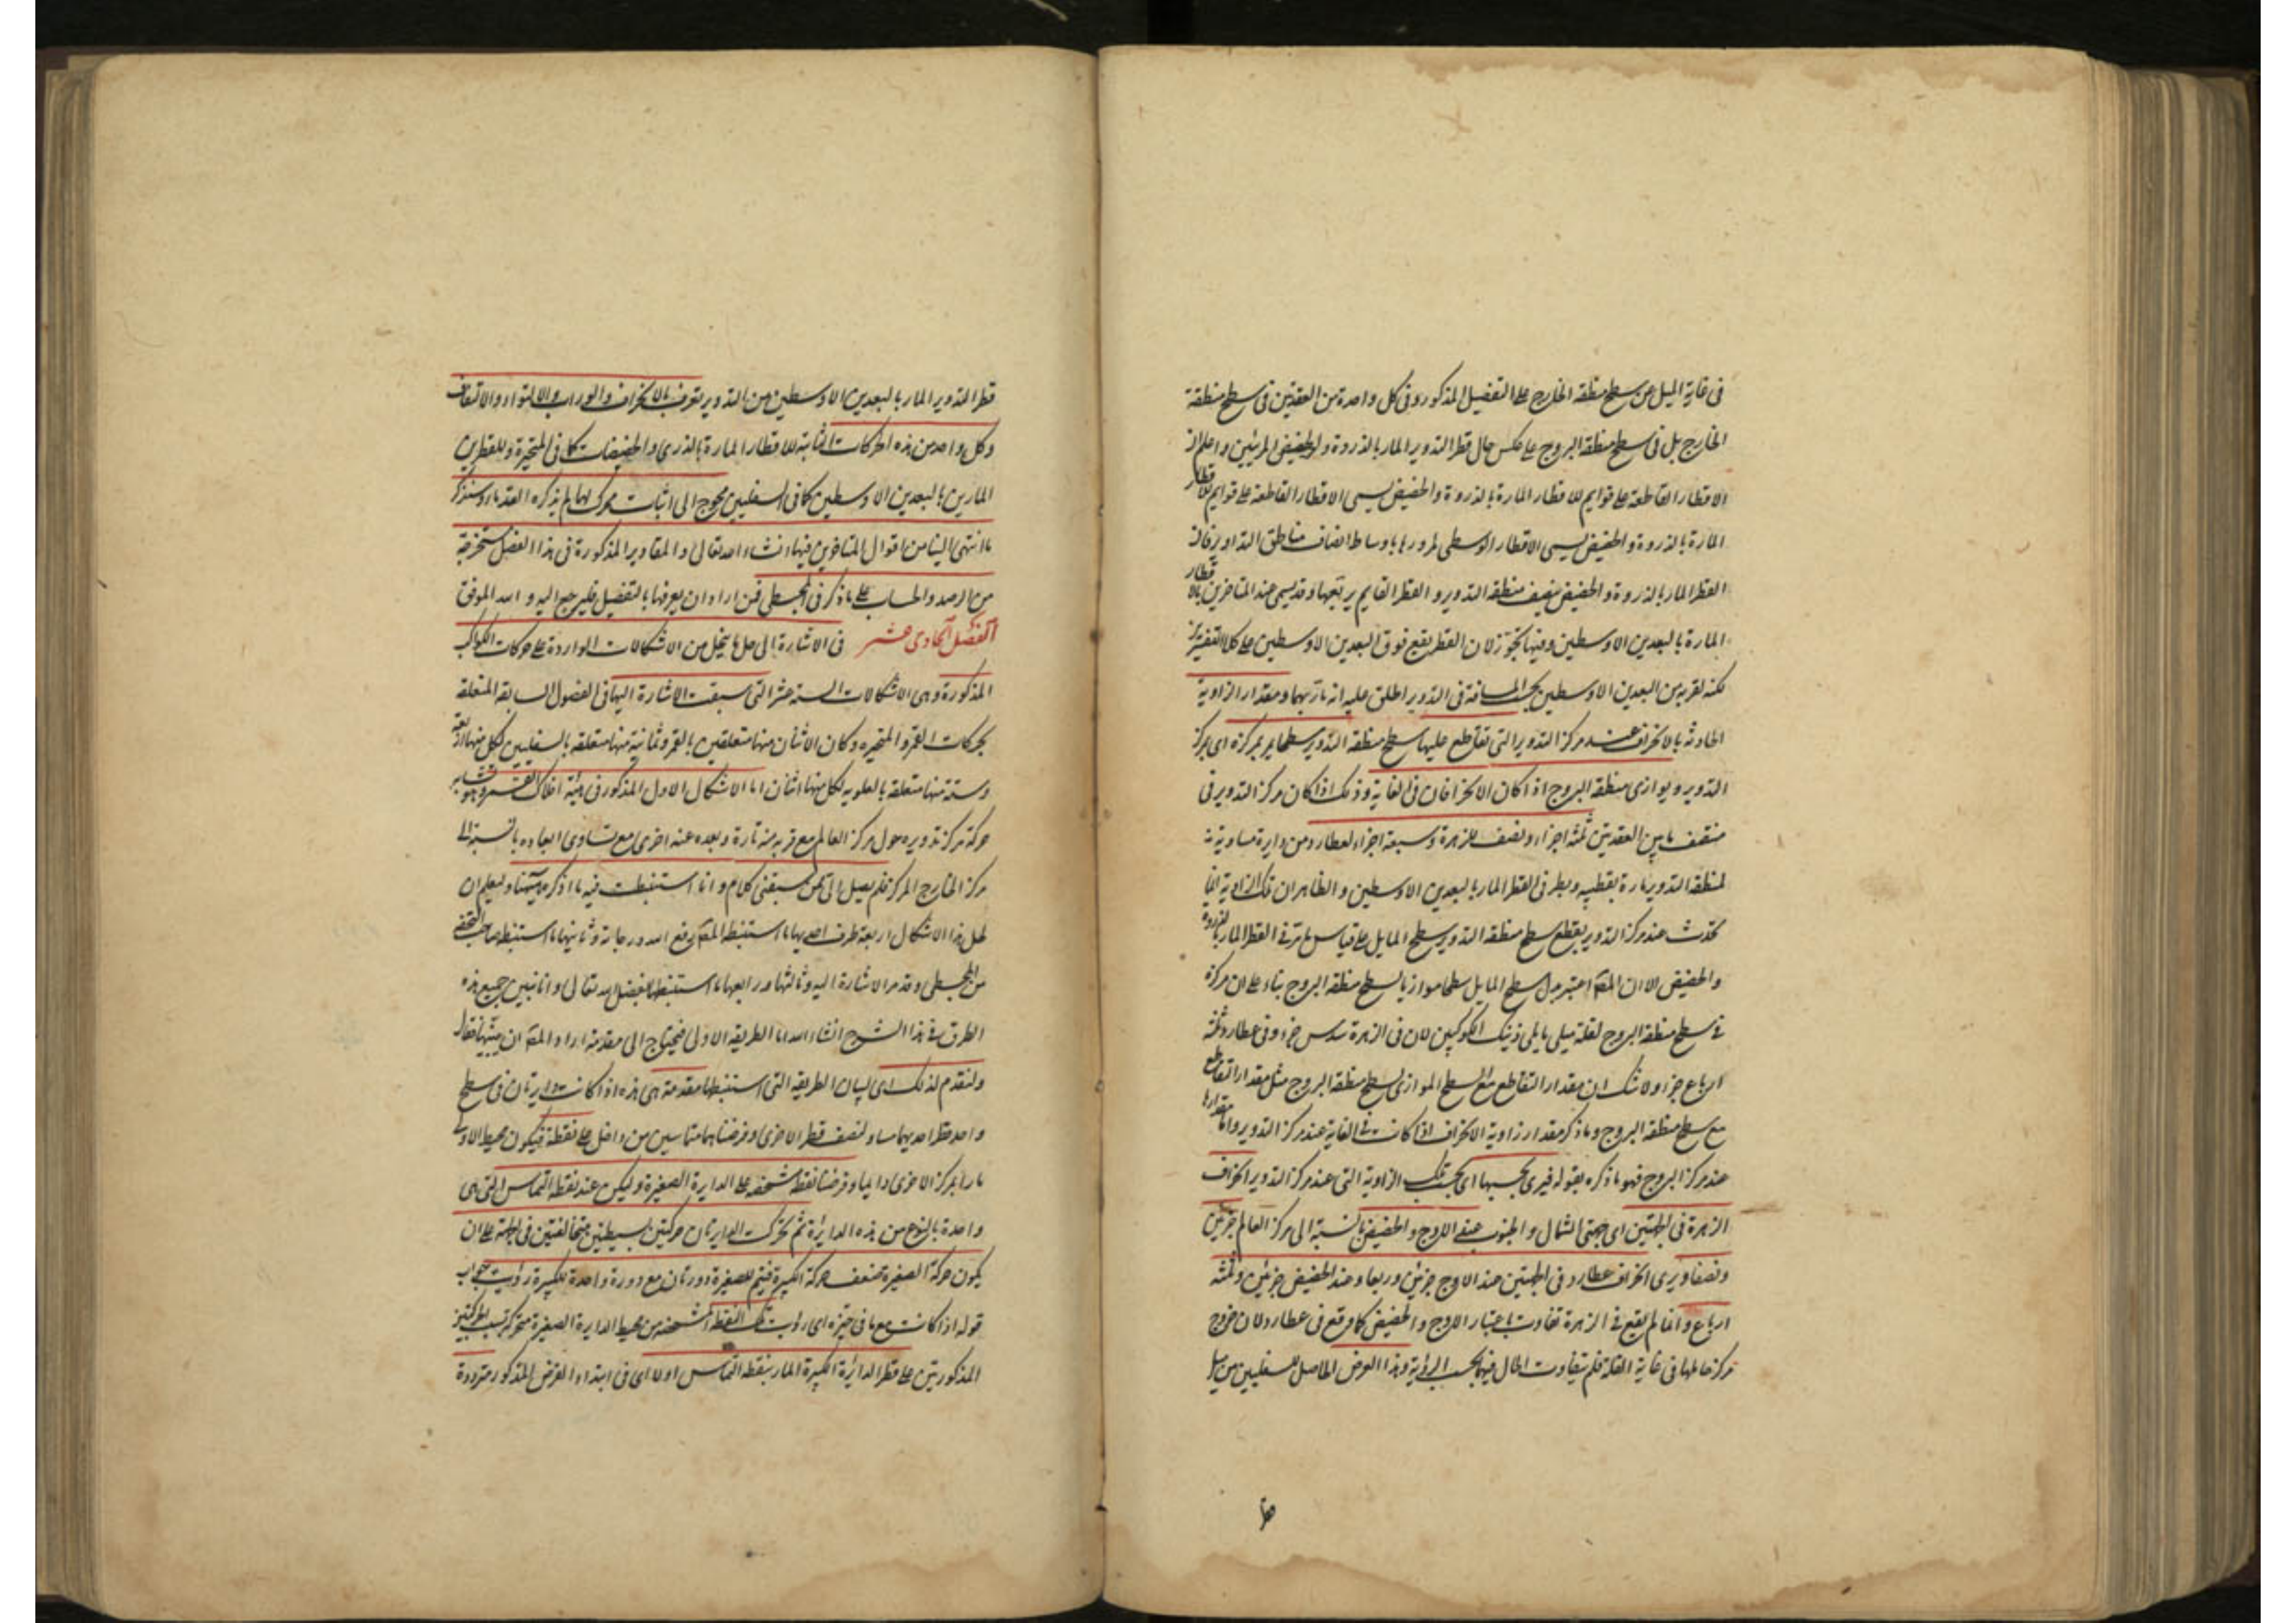 في غاية الميل عن سطح منطقة الخارج على التفصيل المذكور وفي كل واحدة من العقدتين في سطح منطقة
الخارج بل في سطح منطقة البروج على عكس حال قطر التدوير المار بالذروة والحضيض المرئيين واعلم ان
الاقطار القاطعة على قوايم للاقطار المارة بالذروة والحضيض يسمى الاقطار القاطعة على قوايم للاقطار
المارة بالذروة والحضيض يسمى الاقطار الوسطى لمرورها باوساط انصاف مناطق التداوير فان
القطر المار بالذروة والحضيض ينصف منطقة التدوير والقطر القايم يربعها وقد يسمى عند المتاخرين بالاقطار
المارة بالبعدين الاوسطين وفيها تجوز لان القطر يقع فوق البعدين الاوسطين على كلا التفسيرين
لكنه لقربه من البعدين الاوسطين بحسب المسافة في التدوير اطلق عليه انه مار بهما ومقدار الزاوية
الحادثة بالانحراف عند مركز التدوير التي تقاطع عليها سطح منطقة التدوير سطحا يمر بمركزه اى بمركز
التدوير ويوازى منطقة البروج اذا كان الانحرافان في الغاية وذلك اذا كان مركز التدوير في
منتصف ما بين العقدتين ثلثة اجزاء ونصف للزهرة وسبعة اجزاء لعطارد من دايرة مساوية
لمنطقة التدوير مارة بقطبيه وبطرفي القطر المار بالبعدين الاوسطين والظاهران تلك الزاوية انما
تحدث عند مركز التدوير بتقاطع سطح منطقة التدوير سطح المايل على قياس ما مر في القطر المار بالذروة
والحضيض الا ان المصـ اعتبر بدل سطح المايل سطحا موازيا لسطح منطقة البروج بناء على ان مركزه
في سطح منطقة البروج لقلة ميلى مايلى ذينك الكوكبين لان في الزهرة سدس جزء وفي عطارد ثلثة
ارباع جزء ولا شك ان مقدار التقاطع مع السطح الموازى لسطح منطقة البروج مثل مقدار التقاطع
مع سطح منطقة البروج وما ذكر مقدار زاوية الانحراف اذا كانت في الغاية عند مركز التدوير واما مقدارها
عند مركز البروج فهو ما ذكره بقوله فيرى بحسبها اى بحسب تلك الزاوية التي عند مركز التدوير انحراف
الزهرة في الجهتين اى جهتى الشمال والجنوب عند الاوج والحضيض بالنسبة الى مركز العالم جزئين
ونصفا ويرى انحراف عطارد في الجهتين عند الاوج جزئين وربعا وعند الحضيض جزئين وثلثة
ارباع وانما لم يقع في الزهرة تفاوت باعتبار الاوج والحضيض كما وقع في عطارد لان خروج
مركز حاملها في غاية القلة فلم يتفاوت الحال فيها بحسب الرؤية وهذا العرض الحاصل للسفليين من ميل
قطر
قطر التدوير المار بالبعدين الاوسطين من التدوير يعرف بالانحراف والوراب والالتواء والالتفاف
وكل واحد من هذه الحركات الثابتة للاقطار المارة بالذرى والحضيضات كما في المتحيرة وللقطرين
المارين بالبعدين الاوسطين كما في السفليين محوج الى اثبات محرك لها لم يذكره القدماء وسنذكر
ما انتهى الينا من اقوال المتاخرين فيها انشاء الله تعالى والمقادير المذكورة في هذا الفصل مستخرجة
من الرصد والحساب على ما ذكر في المجسطى فمن اراد ان يعرفها بالتفصيل فليرجع اليه والله الموفق
الفصل الحادى عشر في الاشارة الى حل ما ينحل من الاشكالات الواردة على حركات الكواكب
المذكورة وهى الاشكالات الستة عشر التي سبقت الاشارة اليها في الفصول السابقة المتعلقة
بحركات القمر والمتحيرة وكان الاثنان منها متعلقين بالقمر وثمانية منها متعلقة بالسفليين لكل منها اربعة
وستة منها متعلقة بالعلوية لكل منها اثنان اما الاشكال الاول المذكور في هيئة افلاك القمر وهو تشابه
حركة مركز تدويره حول مركز العالم مع قربه منه تارة وبعده عنه اخرى مع تساوى ابعاده بالنسبة الى
مركز الخارج المركز فلم يصل الى ممن سبقنى كلام وانا استنبطت فيه ما اذكره هيهنا وليعلم ان
لحل هذا الاشكال اربعة طرق احديها ما استنبطه المصـ رفع الله درجاته وثانيها ما استنبطه صاحب التحفة
من المجسطى وقد مر الاشارة اليه وثالثها ورابعها ما استنبطها بفضل الله تعالى وانا نبين جميع هذه
الطرق في هذا الشرح انشاء الله اما الطريقة الاولى فيحتاج الى مقدمة اراد المصـ ان يبينها فقال
ولنقدم لذلك اى لبيان الطريقة التي استنبطها مقدمة هى هذه اذا كانت دايرتان في سطح
واحد قطر احديهما مساو لنصف قطر الاخرى وفرضتا متماستين من داخل على نقطة فيكون محيط الاولى
مارا بمركز الاخرى دايما وفرضنا نقطة متشخصة على الدايرة الصغيرة وليكن عند نقطة التماس التي هى
واحدة بالنوع من هذه الدايرة ثم تحركت الدايرتان حركتين بسيطتين متخالفتين في الجهة على ان
يكون حركة الصغيرة ضعف حركة الكبيرة فيتم للصغيرة دورتان مع دورة واحدة للكبيرة رؤيت جواب
قوله اذا كانت مع ما في حيزه اى رؤيت تلك النقطة المتشخصة من محيط الدايرة الصغيرة متحركة بسبب الحركتين
المذكورتين على قطر الدايرة الكبيرة المار بنقطة التماس اولا اى في ابتداء الفرض المذكور مترددة